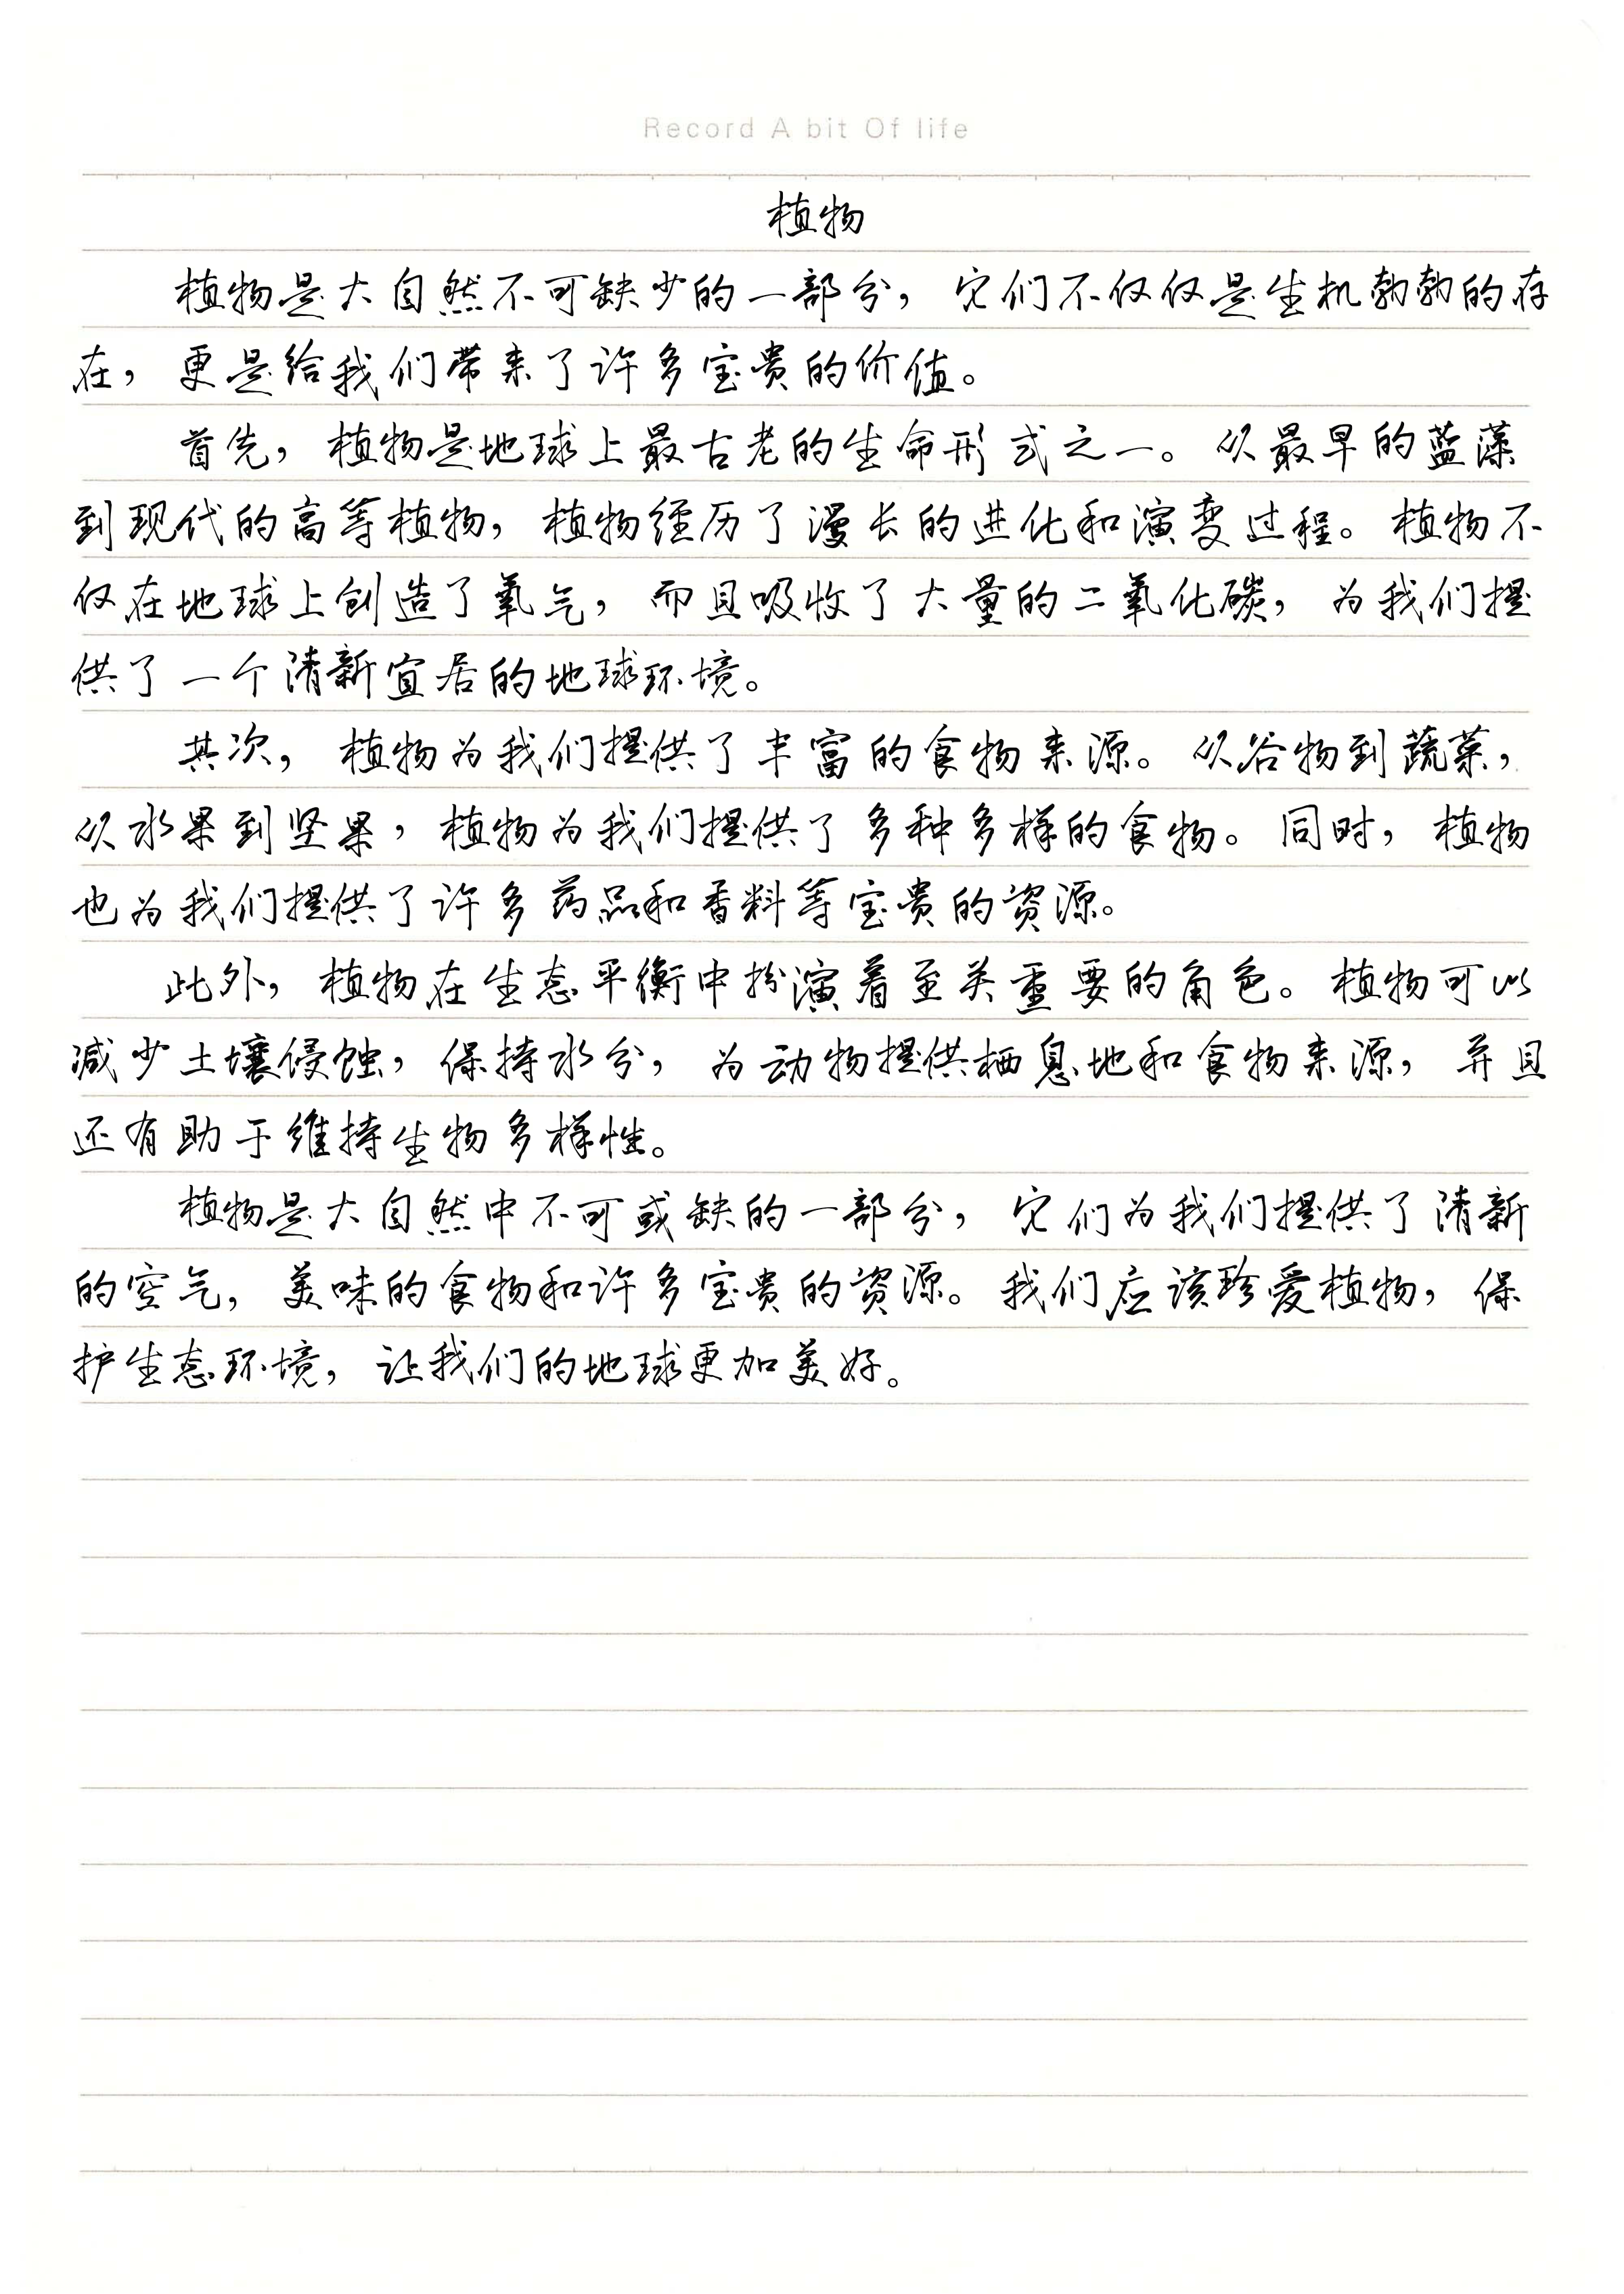 Record A bit Of life
植物
植物是大自然不可缺少的一部分，它们不仅仅是生机勃勃的存
在，更是给我们带来了许多宝贵的价值。
首先，植物是地球上最古老的生命形式之一。从最早的蓝藻
到现代的高等植物，植物经历了漫长的进化和演变过程。植物不
仅在地球上创造了氧气，而且吸收了大量的二氧化碳，为我们提
供了一个清新宜居的地球环境。
其次，植物为我们提供了丰富的食物来源。从谷物到蔬菜，
从水果到坚果，植物为我们提供了多种多样的食物。同时，植物
也为我们提供了许多药品和香料等宝贵的资源。
此外，植物在生态平衡中扮演着至关重要的角色。植物可以
减少土壤侵蚀，保持水分，为动物提供栖息地和食物来源，并且
还有助于维持生物多样性。
植物是大自然中不可或缺的一部分，它们为我们提供了清新
的空气，美味的食物和许多宝贵的资源。我们应该珍爱植物，保
护生态环境，让我们的地球更加美好。